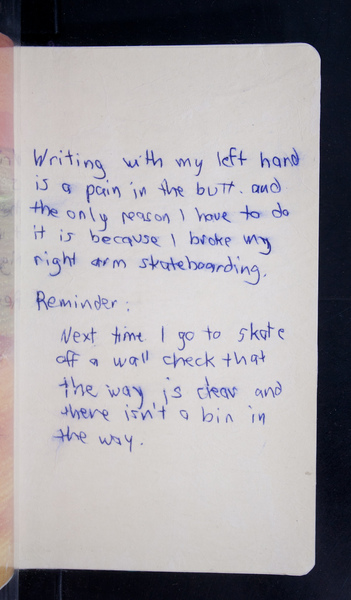 Writing with my left hand
is a pain in the butt. and
the only reason I have to do
it is because I broke my
right arm skateboarding.
Reminder:
Next time I go to skate
off a wall check that
the way is clear and
there isn't a bin in
the way.